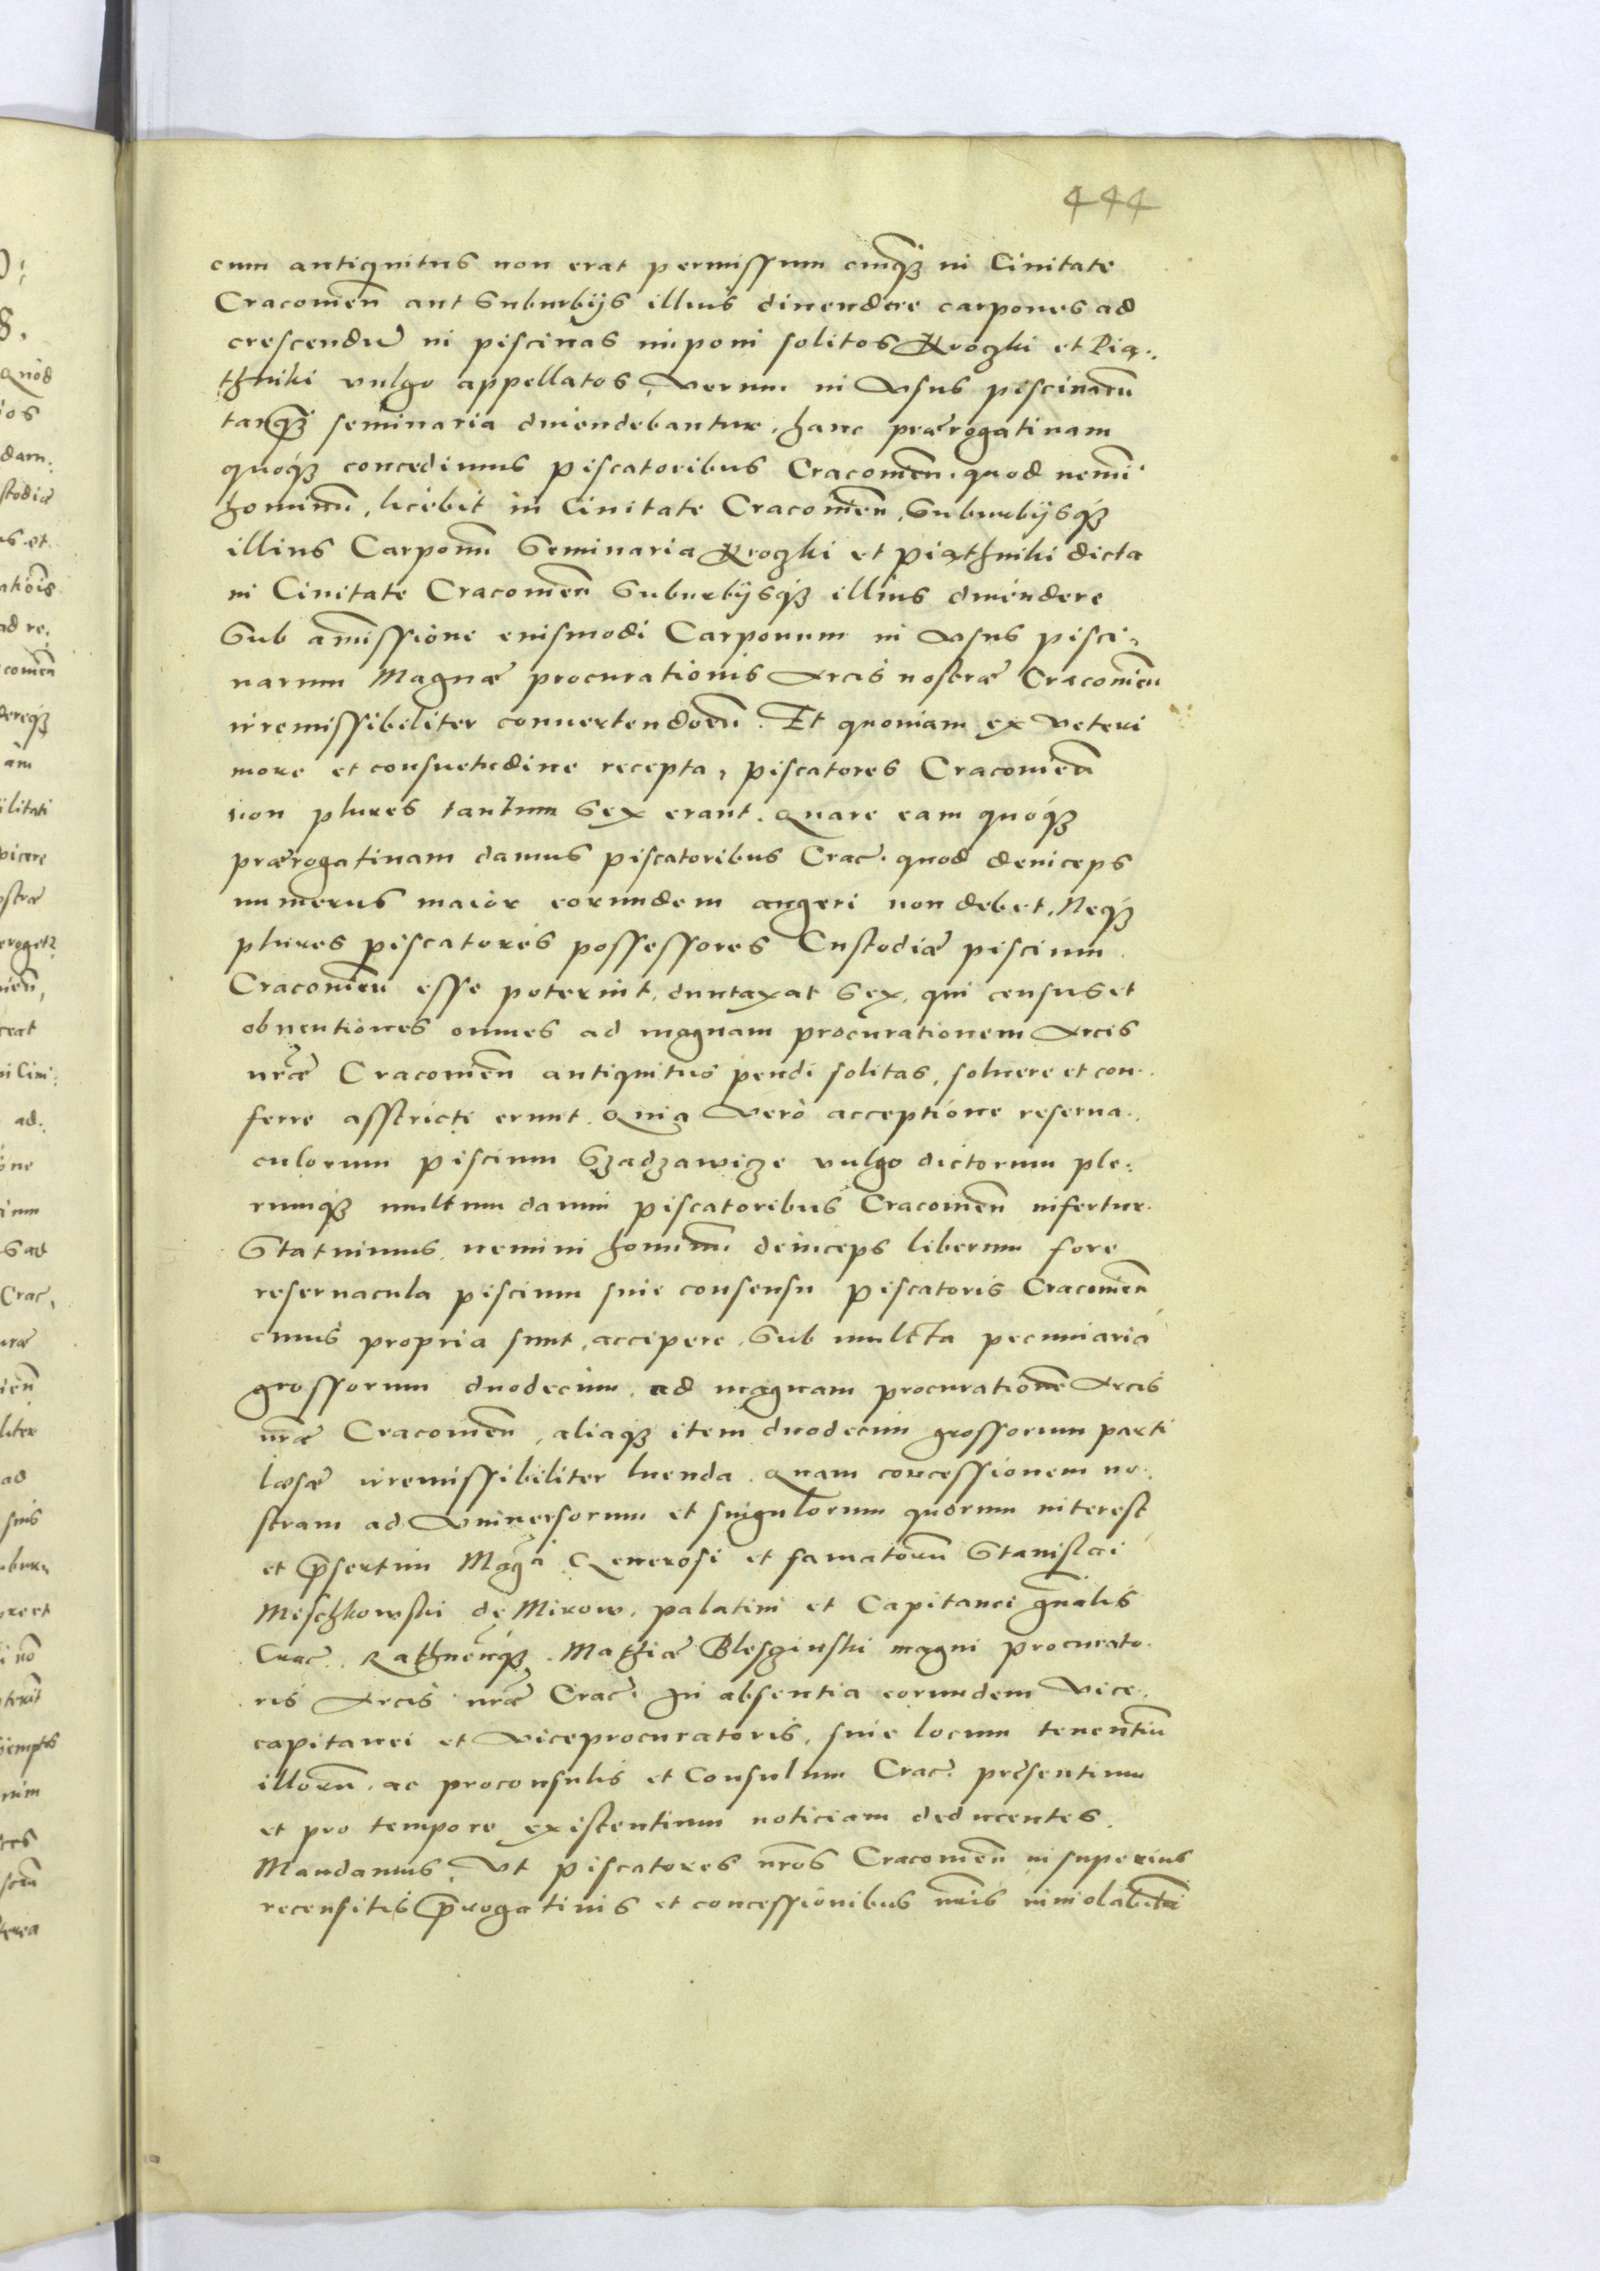 444
cum antiquitus non erat permissum cuiq3 in Ciuitate
Cracouien̄ aut Suburbijs illius diuendere carpones ad
crescendū in piscinas imponi solitos Kroczki et Pią:
thniki vulgo appellatos, verum in Vsus piscinarū
tanq3 seminaria diuendebantur, hanc prærogatiuam
quoq3 concedimus piscatoribus Cracouien̄. quod nemī
hominū, licebit in Ciuitate Cracouien̄, Suburbijsq3
illius Carponū Seminaria Kroczki et piąthniki dicta
in Ciuitate Cracouien̄ Suburbijsq3 illius diuendere
Sub amissione eiusmodi Carponum in Vsus pisci:
narum Magnæ procurationis Arcis nostræ Cracouien̄
irremissibiliter conuertendorū. Et quoniam ex Veteri
more et consuetudine recepta, piscatores Cracouien̄
non plures tantum Sex erant. Quare eam quoq3
prærogatiuam damus piscatoribus Crac. quod deinceps
numerus maior eorundem augeri non debet, Neq3
plures piscatores possessores Custodiæ piscium
Cracouien̄ esse poterint, duntaxat Sex, qui census et
obuentiones omnes ad magnam procurationem Arcis
nr̄æ Cracouien̄ antiquitus pendi solitas, soluere et con:
ferre asstricti erunt. Quia Verò acceptione reserua:
culorum piscium Szadzawicze vulgo dictorum ple:
rumq3 multum damni piscatoribus Cracouien̄ infertur.
Statuimus nemini hominū deinceps liberum fore
reseruacula piscium sine consensu piscatoris Cracouien̄
cuius propria sunt, accipere, Sub mulcta pecuniaria
grossorum duodecim, ad magnam procurationē Arcis
nr̄æ Cracouien̄, aliaq3 item duodecim grossorum parti
læsæ irremissibiliter luenda. Quam concessionem no:
stram ad Vniuersorum et singulorum quorum interest
et p̄sertim Mag̃ci Generosi et famatorū Stanislai
Mischkowski de Mirow, palatini et Capitanei gn̄alis
Crac. Rathneńq3. Mathiæ Blesginski magni procurato:
ris Arcis nr̄æ Crac. In absentia eorundem Vice:
capitanei et Viceprocuratoris, siue locum tenentiū
illorū, ac proconsulis et Consulum Crac. præsentium
et pro tempore existentium noticiam deducentes.
Mandamus, Vt piscatores nr̄os Cracouien̄ in superius
recensitis p̄rogatiuis et concessionibus nr̄is inuiolabilitr̄